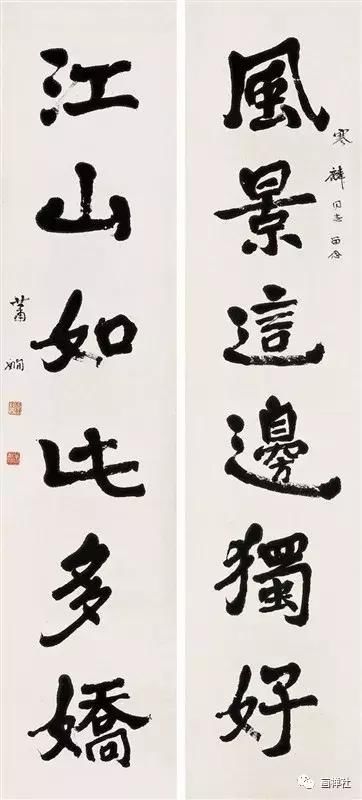 風景這邊獨好
寒 同志 留念
江山如此多嬌
蕭嫻
画禅社